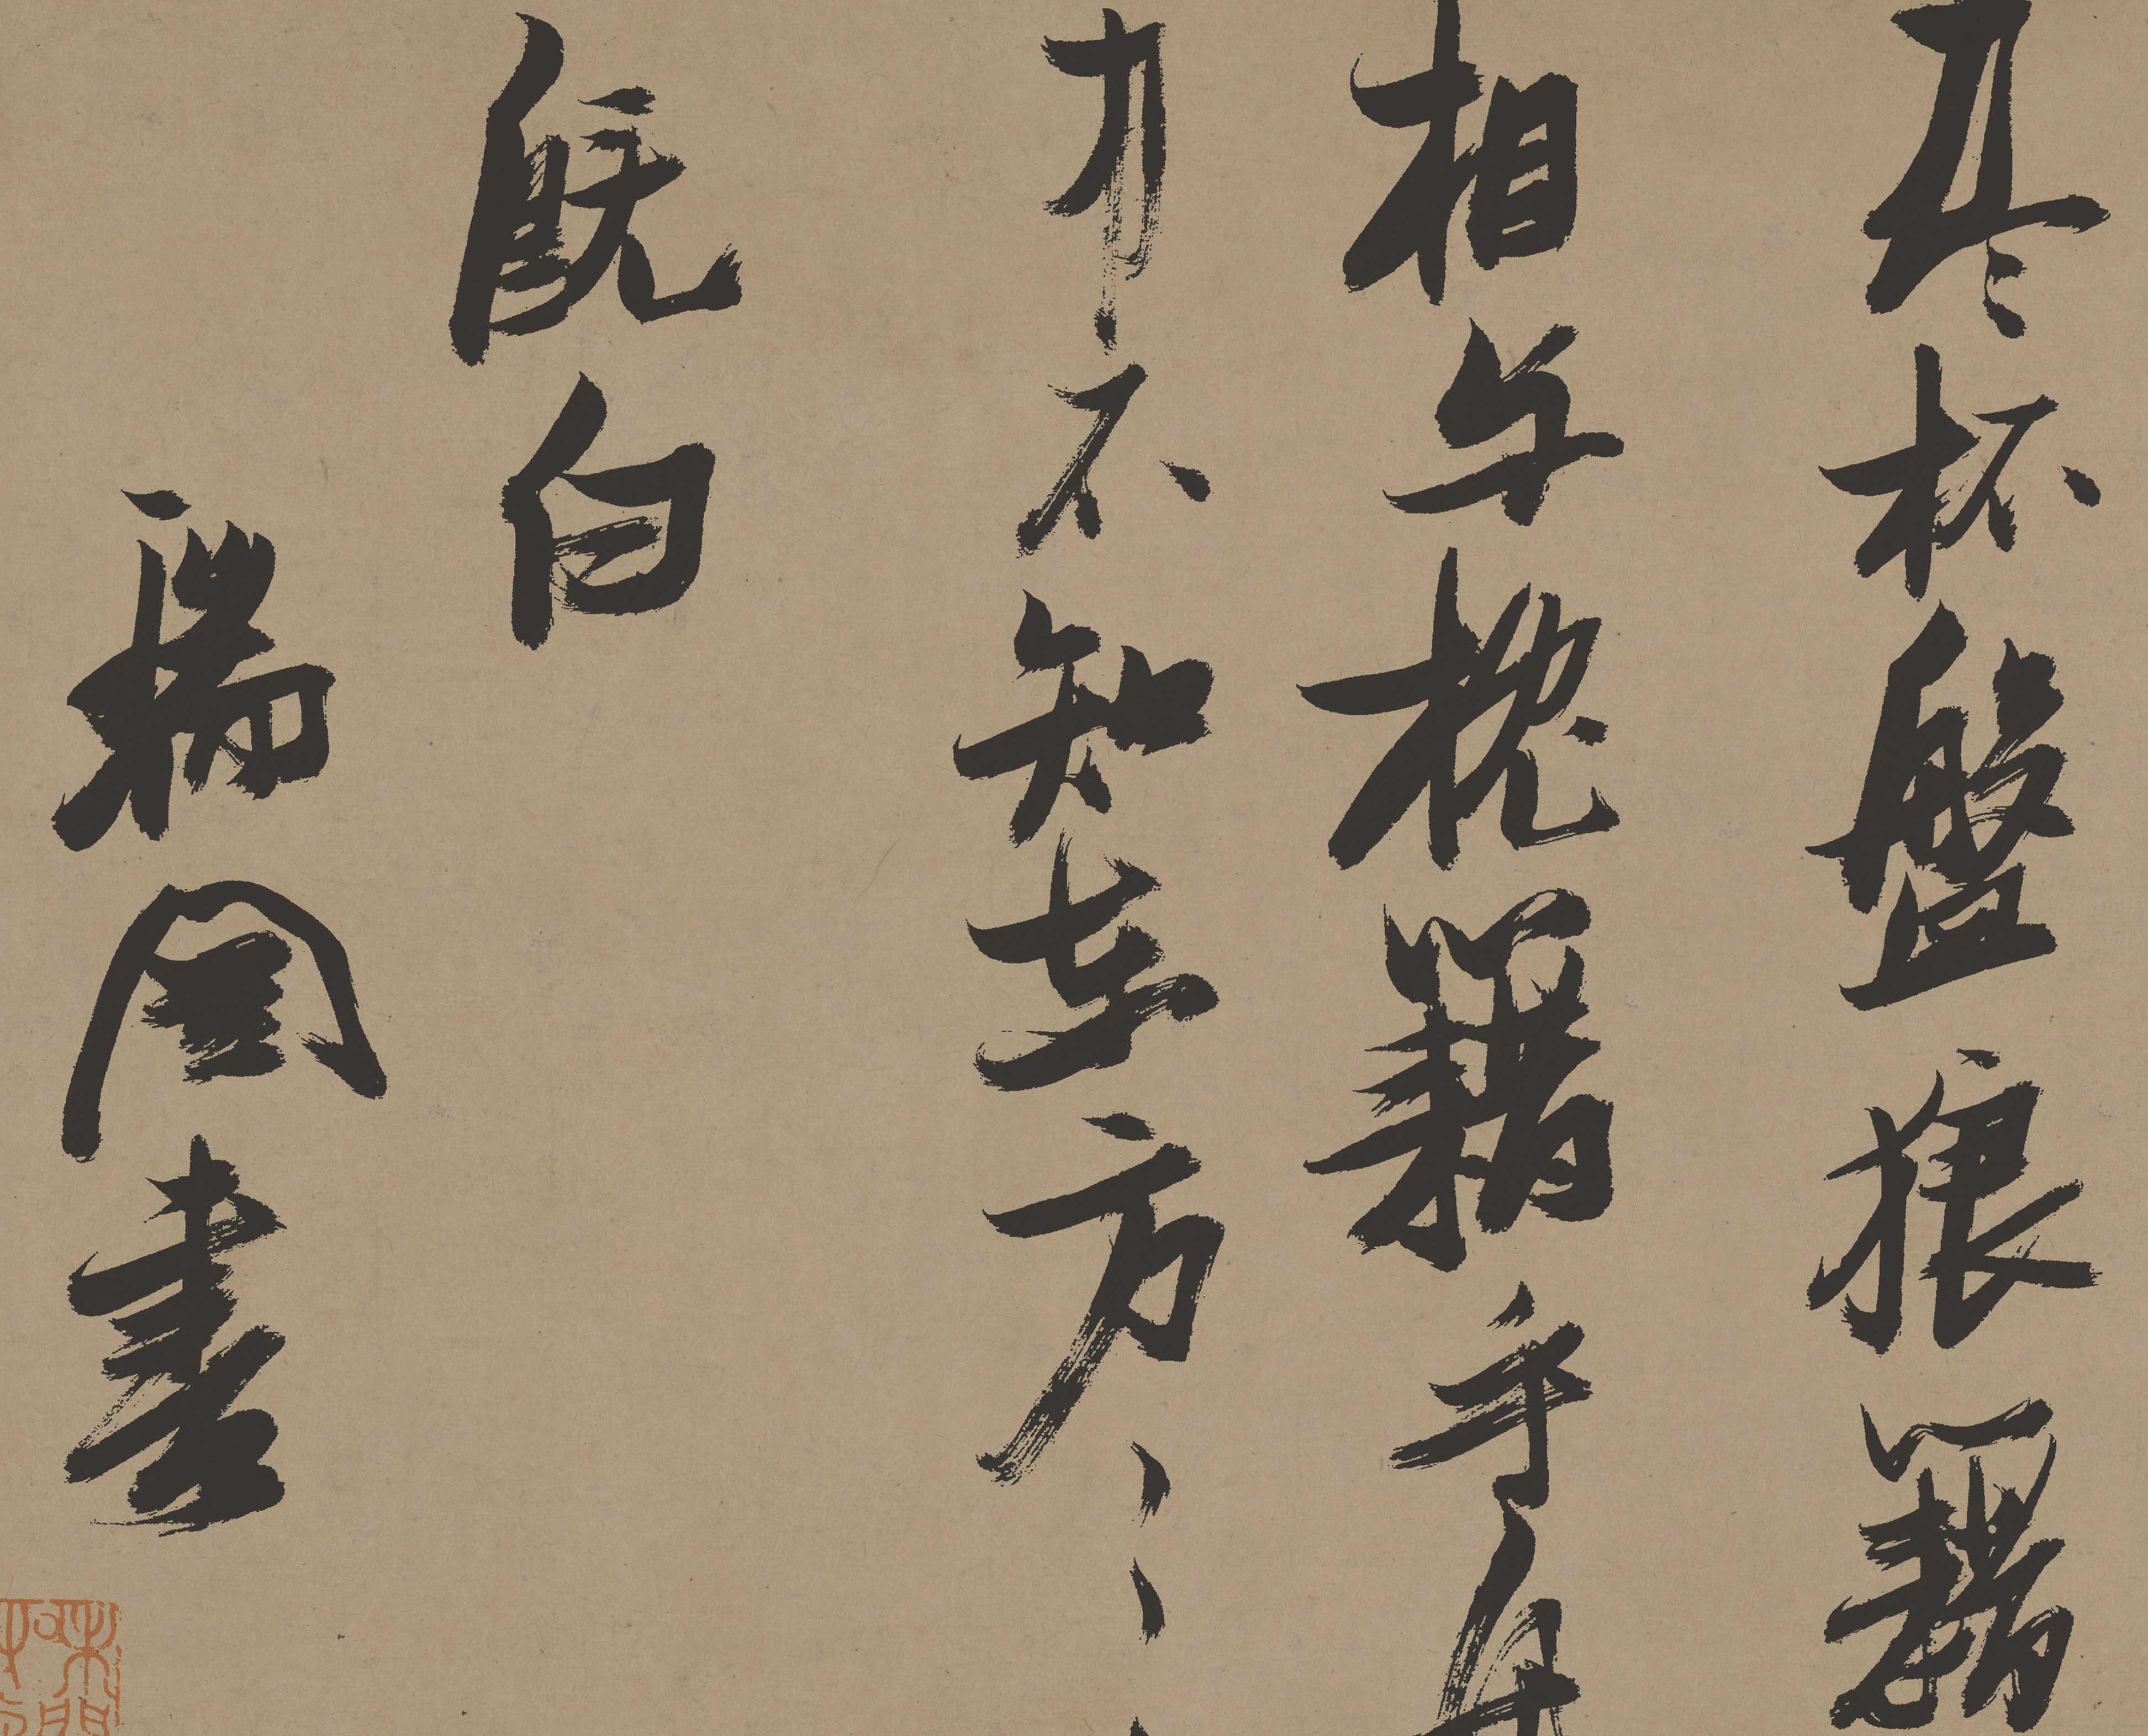 尽杯盤狼籍
相与枕籍乎舟
中不知東方之
既白
瑞圖書